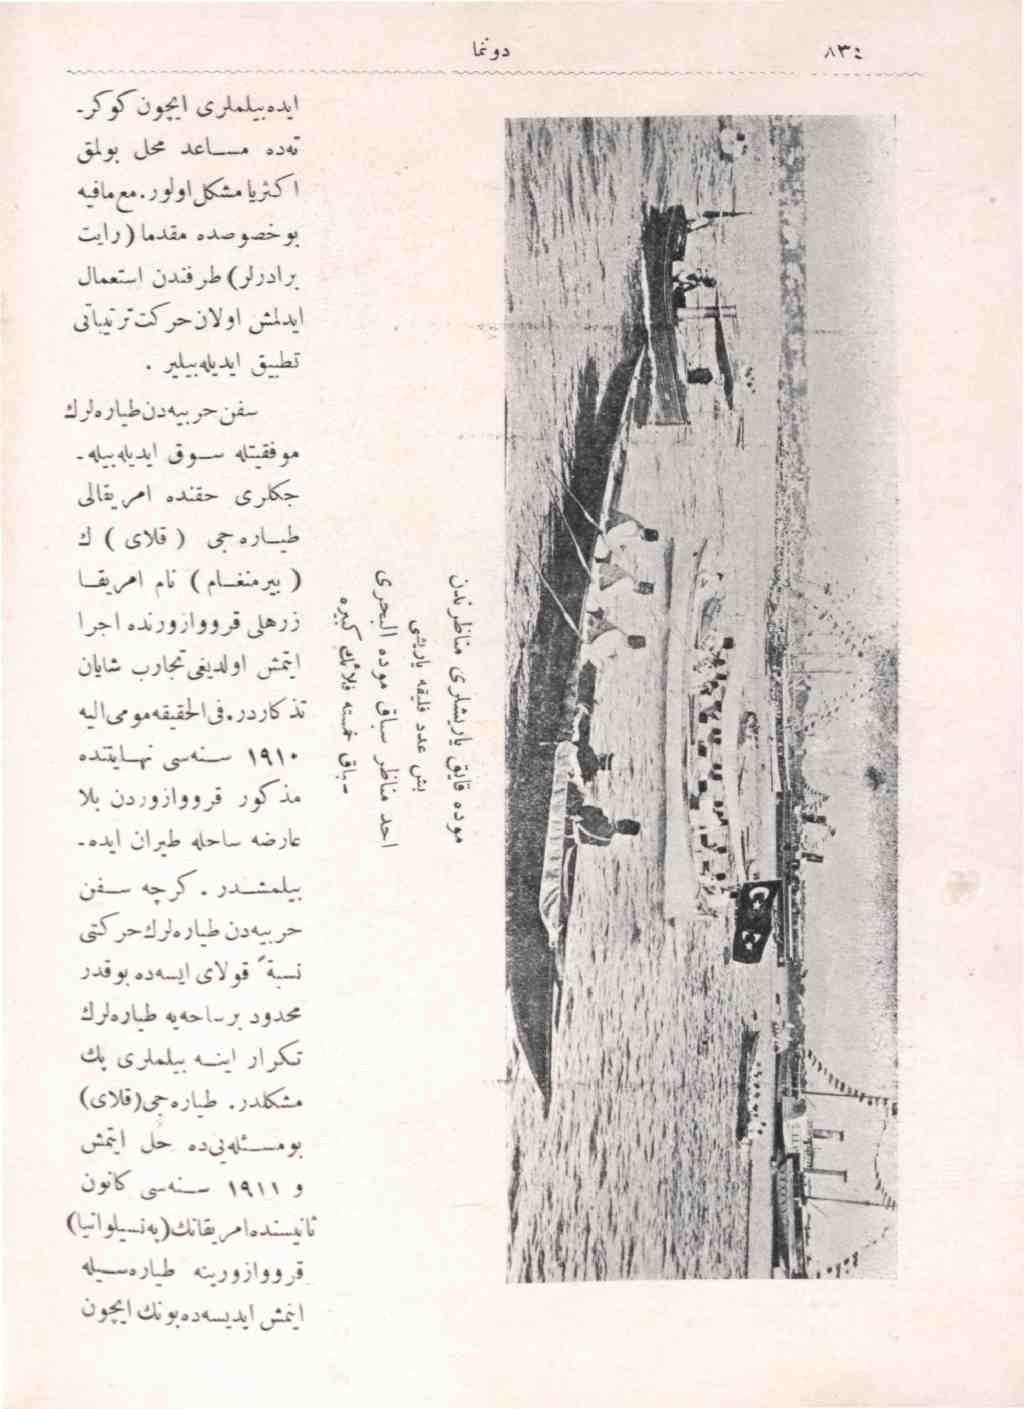 ٨٣٤
دونما
ايده‌بيلملری ايچون كوكر-
ته‌ده مساعد محل بولمق
اكثريا مشكل اولور. مع مافيه
بو خصوصده مقدما (رايت
برادرلر) طرفندن استعمال
ايدلمش اولان حركت ترتيباتی
تطبيق ايديله‌بيلير .
سفن حربيه‌دن طياره‌لرك
موفقيتله سوق ايديله‌بيله-
جكلری حقنده امريقالی
طياره‌جی ( قلای ) ك
( بيرمنغام ) نام امريقا
زرهلی قرووازورنده اجرا
ايتمش اولديغی تجارب شايان
تذكاردر. فی الحقيقه مومی اليه
١٩١٠ سنه‌سی نهايتنده
مذكور قرووازوردن بلا
عارضه ساحله طيران ايده-
بيلمشدر . كرچه سفن
حربيه‌دن طياره‌لرك حركتی
نسبةً قولای ايسه‌ده بوقدر
محدود بر ساحه‌يه طياره‌لرك
تكرار اينه بيلملری پك
مشكلدر. طياره‌جی (قلای)
بو مسئله‌يی‌ده حل ايتمش
و ١٩١١ سنه‌سی كانون
ثانيسنده امريقانك (په‌نسيلوانيا)
قرووازورينه طياره‌سيله
اينمش ايديسه‌ده بونك ايچون
موده قايق ياريشلری مناظرندن
بش عدد فليقه ياريشی
احد مناظر سباق موده البحری
سباق خمسته فلائك كبيره